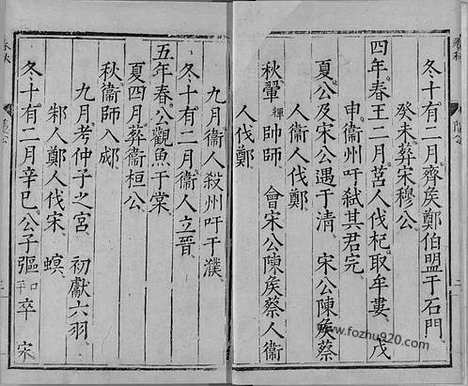 冬十有二月齊侯鄭伯盟于石門
癸未葬宋穆公
四年春王二月莒人伐杞取牟婁 戊
申衛州吁弑其君完
夏公及宋公遇于清 宋公陳侯蔡
人衛人伐鄭
秋翬帥師 會宋公陳侯蔡人衛
人伐鄭
九月衛人殺州吁于濮
冬十有二月衛人立晉
五年春公觀魚于棠
夏四月葬衛桓公
秋衛師入郕
九月考仲子之宮 初獻六羽
邾人鄭人伐宋 螟
冬十有二月辛巳公子彄卒 宋
www.fozhu920.com